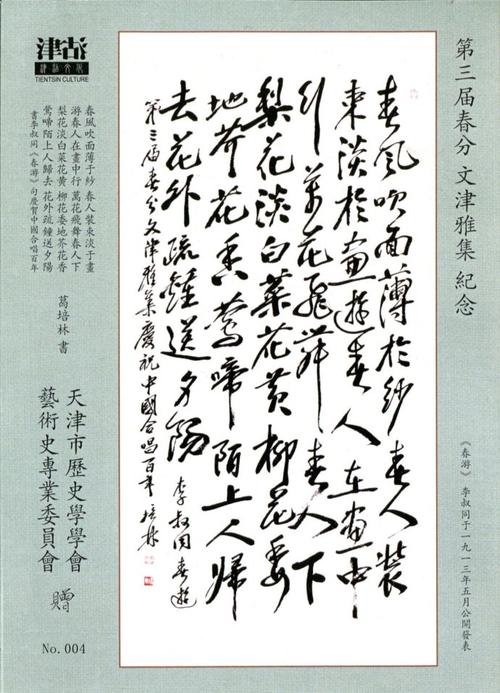 第三届春分 文津雅集 紀念
《春游》 李叔同于一九一三年五月公開發表
春風吹面薄於紗春人裝
束淡於畫遊春人在畫中
行萬花飛舞春人下
梨花淡白菜花黃柳花委
地芥花香鶯啼陌上人歸
去花外疏鐘送夕陽 李叔同春遊
第三届春分文津雅集慶祝中國合唱百年 培林
津沽
TIENTSIN CULTURE
春風吹面薄于紗 春人裝束淡于畫
游春人在畫中行 萬花飛舞春人下
梨花淡白菜花黄 柳花委地芥花香
鶯啼陌上人歸去 花外疏鐘送夕陽
書李叔同《春游》句慶賀中國合唱百年
葛培林 書
天津市歷史學學會
藝術史專業委員會
贈
No. 004